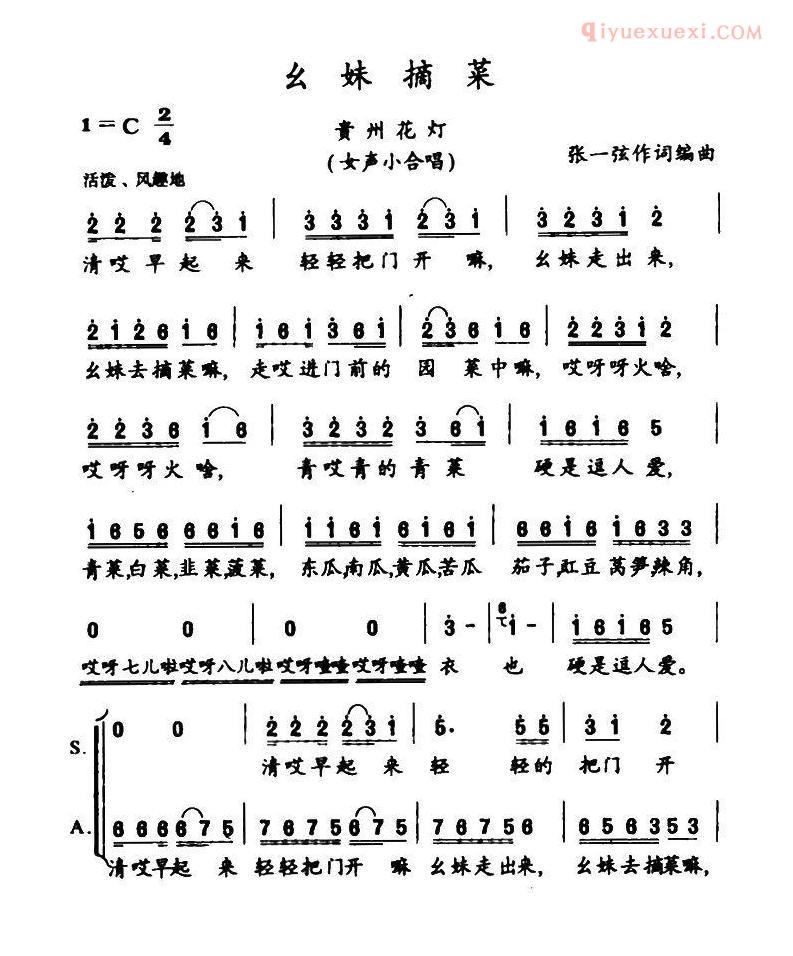 qiyuexuexi.COM
幺妹摘菜
1=C 2/4
貴州花灯
(女声小合唱)
张一弦作词编曲
活泼、风趣地
2 2 2 2 3 1 | 3 3 3 1 2 3 1 | 3 2 3 1 2 |
清哎早起来 轻轻把门开嘛, 幺妹走出来,
2 1 2 6 1 6 | 1 6 1 3 6 1 | 2 3 6 1 6 | 2 2 3 1 2
幺妹去摘菜嘛, 走哎进门前的园菜中嘛, 哎呀呀火啥,
2 2 3 6 1 6 | 3 2 3 2 3 6 1 | 1 6 1 6 5 |
哎呀呀火啥, 青哎青的青菜 硬是逗人爱,
1 6 5 6 6 6 1 6 | 1 1 6 1 6 1 6 1 | 6 6 1 6 1 6 3 3 |
青菜,白菜,韭菜,菠菜, 东瓜,南瓜,黄瓜,苦瓜 茄子,豇豆 莴笋,辣角,
0 0 | 0 0 | 3 - | 6 1 - | 1 6 1 6 5 |
哎呀七儿啦哎呀八儿啦哎呀喳喳哎呀喳喳 衣 也 硬是逗人爱。
S. 0 0 | 2 2 2 2 3 1 | 5. 5 5 | 3 1 2 |
清哎早起来 轻 轻的把门开
A. 6 6 6 6 7 5 | 7 6 7 5 6 7 5 | 7 6 7 5 6 | 6 5 6 3 5 3 |
清哎早起来 轻轻把门开嘛 幺妹走出来, 幺妹去摘菜嘛,